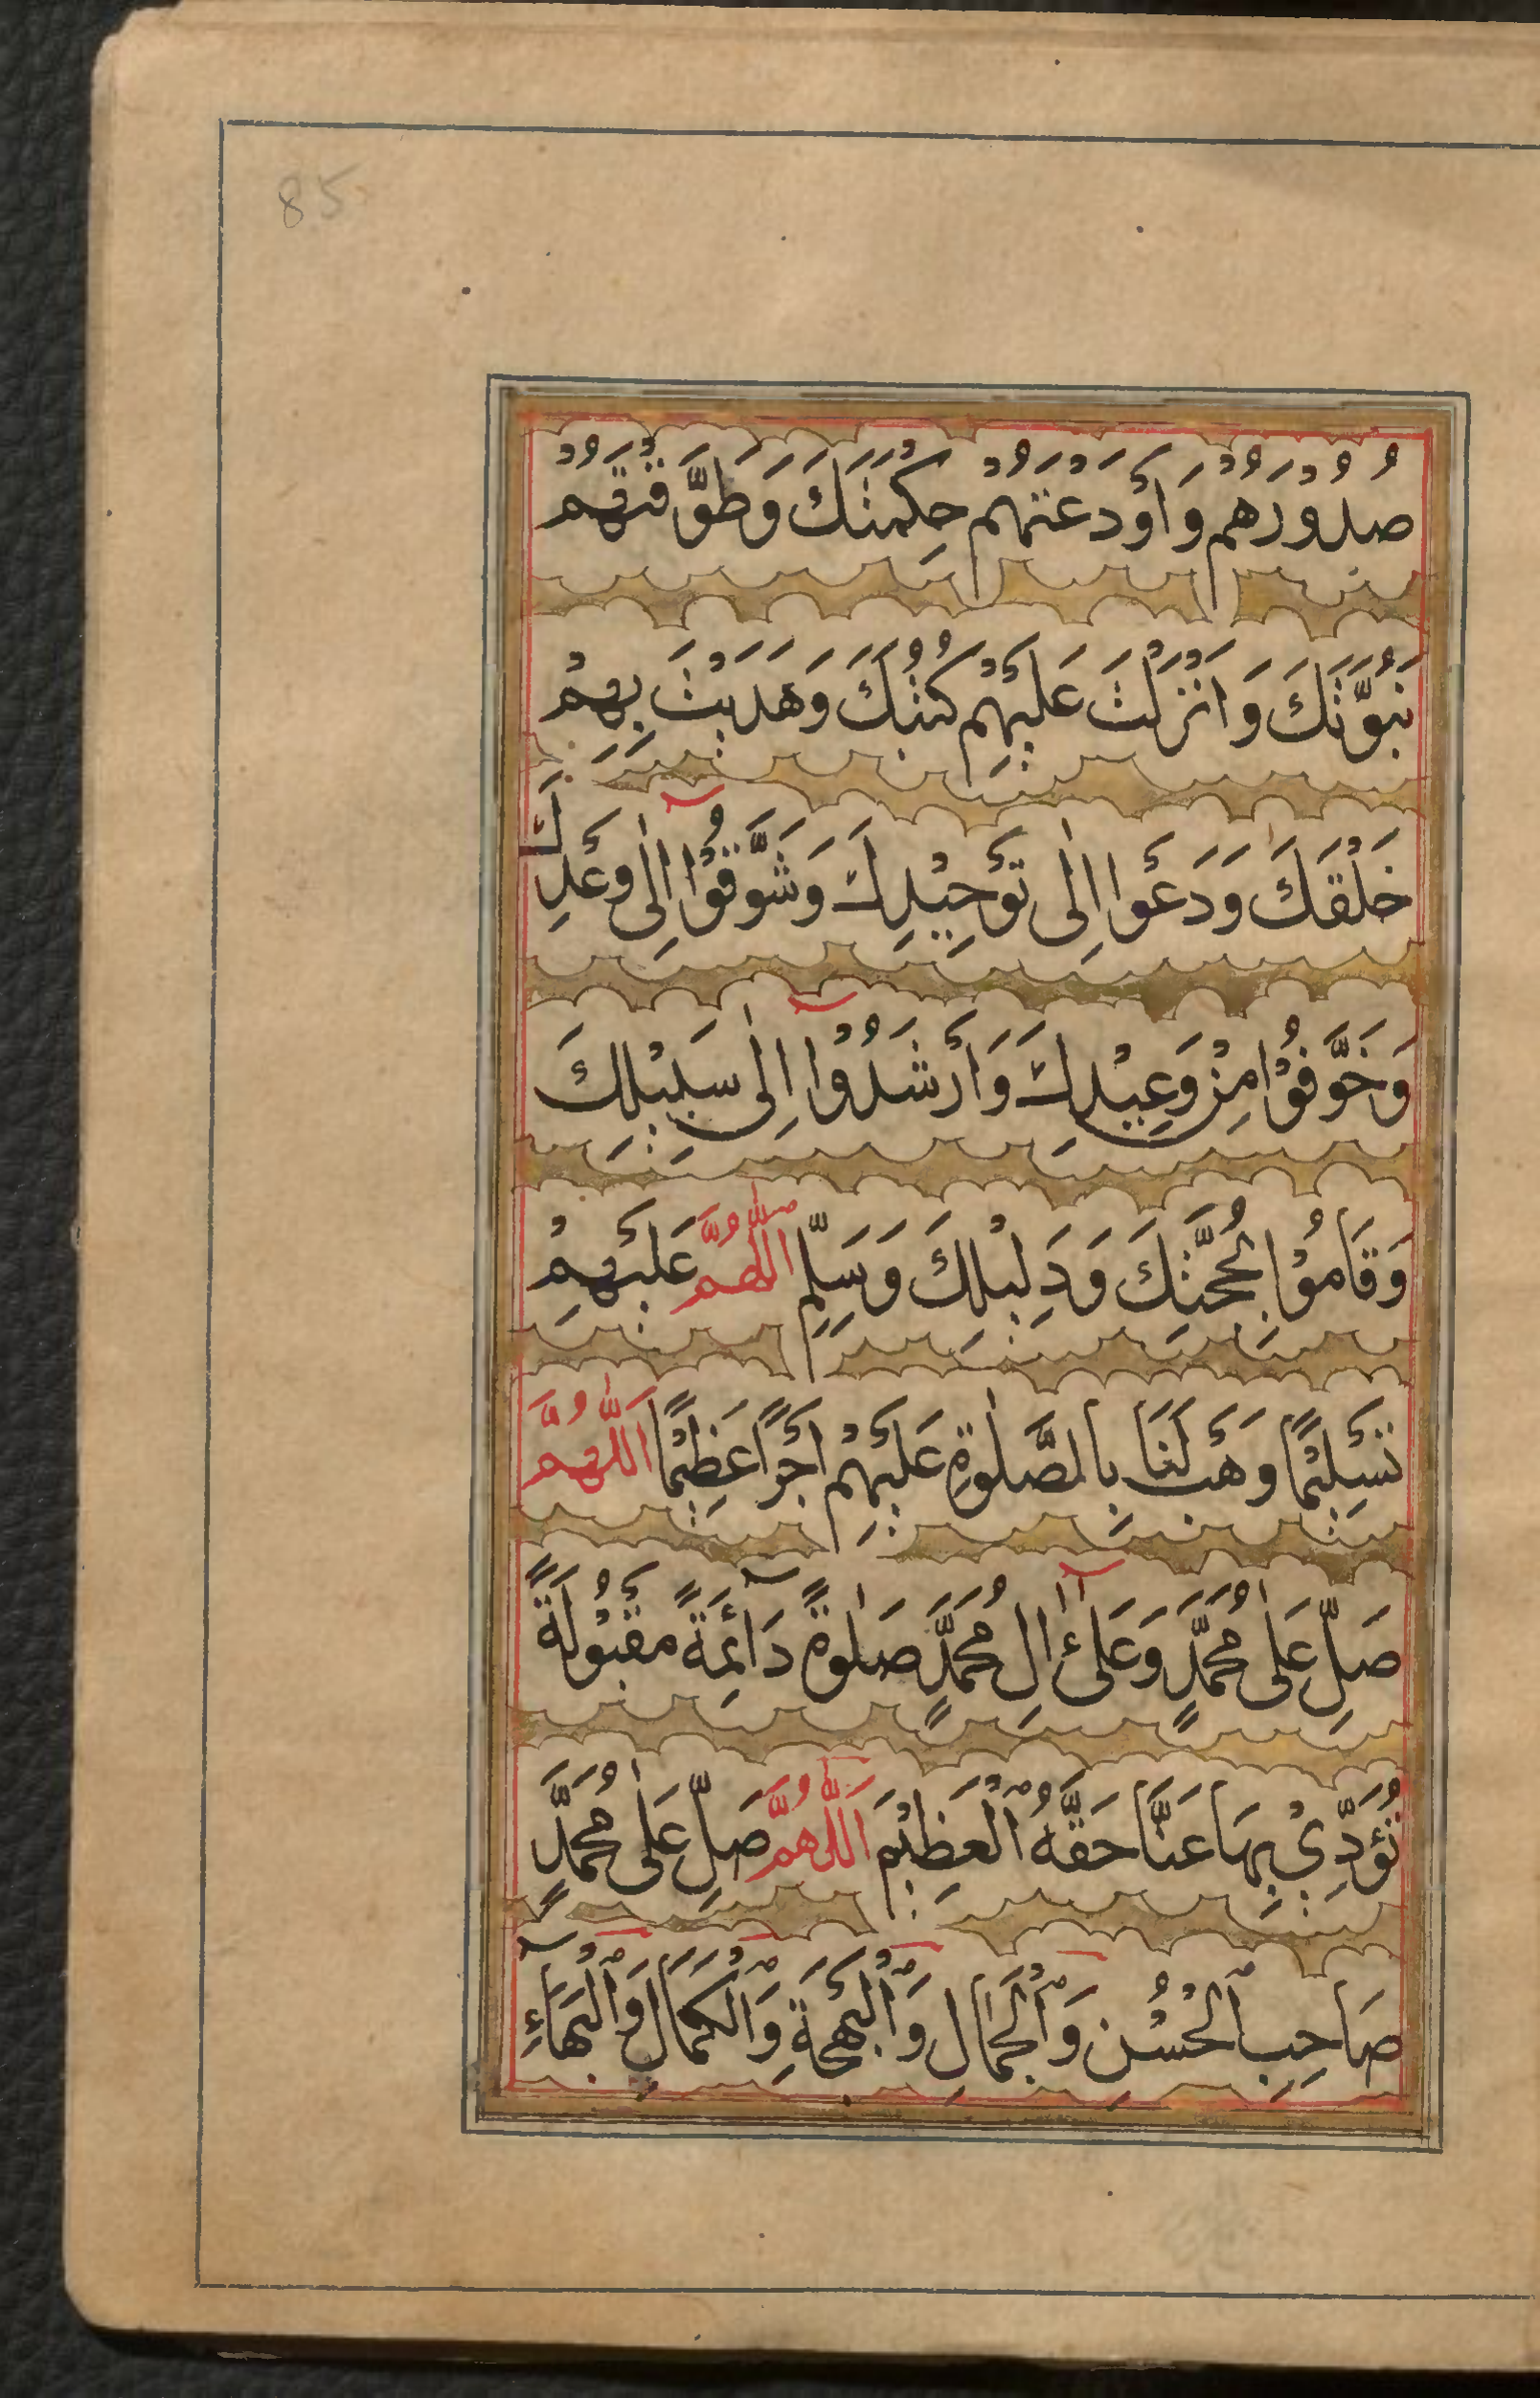 85
صُدُوْرُهُمْ وَاَوْدَعْتَهُمْ حِكْمَتَكَ وَطَوَّقْتَهُمْ
نُبُوَّتَكَ وَاَنْزَلْتَ عَلَيْهِمْ كُتُبَكَ وَهَدَيْتَ بِهِمْ
خَلْقَكَ وَدَعَوْا اِلٰى تَوْحِيْدِكَ وَشَوَّقُوْا اِلٰى وَعْدِكَ
وَخَوَّفُوْا مِنْ وَعِيْدِكَ وَاَرْشَدُوْا اِلٰى سَبِيْلِكَ
وَقَامُوْا بِحُجَّتِكَ وَدَلِيْلِكَ وَسَلِّمِ اللّٰهُمَّ عَلَيْهِمْ
تَسْلِيْمًا وَهَبْ لَنَا بِالصَّلٰوةِ عَلَيْهِمْ اَجْرًا عَظِيْمًا اَللّٰهُمَّ
صَلِّ عَلٰى مُحَمَّدٍ وَعَلٰى اٰلِ مُحَمَّدٍ صَلٰوةً دَآئِمَةً مَقْبُوْلَةً
تُؤَدِّيْ بِهَا عَنَّا حَقَّهُ الْعَظِيْمَ اَللّٰهُمَّ صَلِّ عَلٰى مُحَمَّدٍ
صَاحِبِ الْحُسْنِ وَالْجَمَالِ وَالْبَهْجَةِ وَالْكَمَالِ وَالْبَهَآءِ